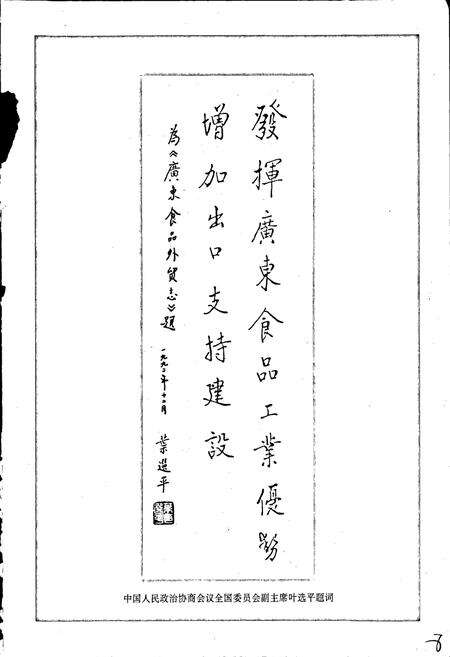 發揮廣東食品工業優勢
增加出口支持建設
為《廣東食品外貿志》題
一九九二年十二月
葉選平
中国人民政治协商会议全国委员会副主席叶选平题词
8